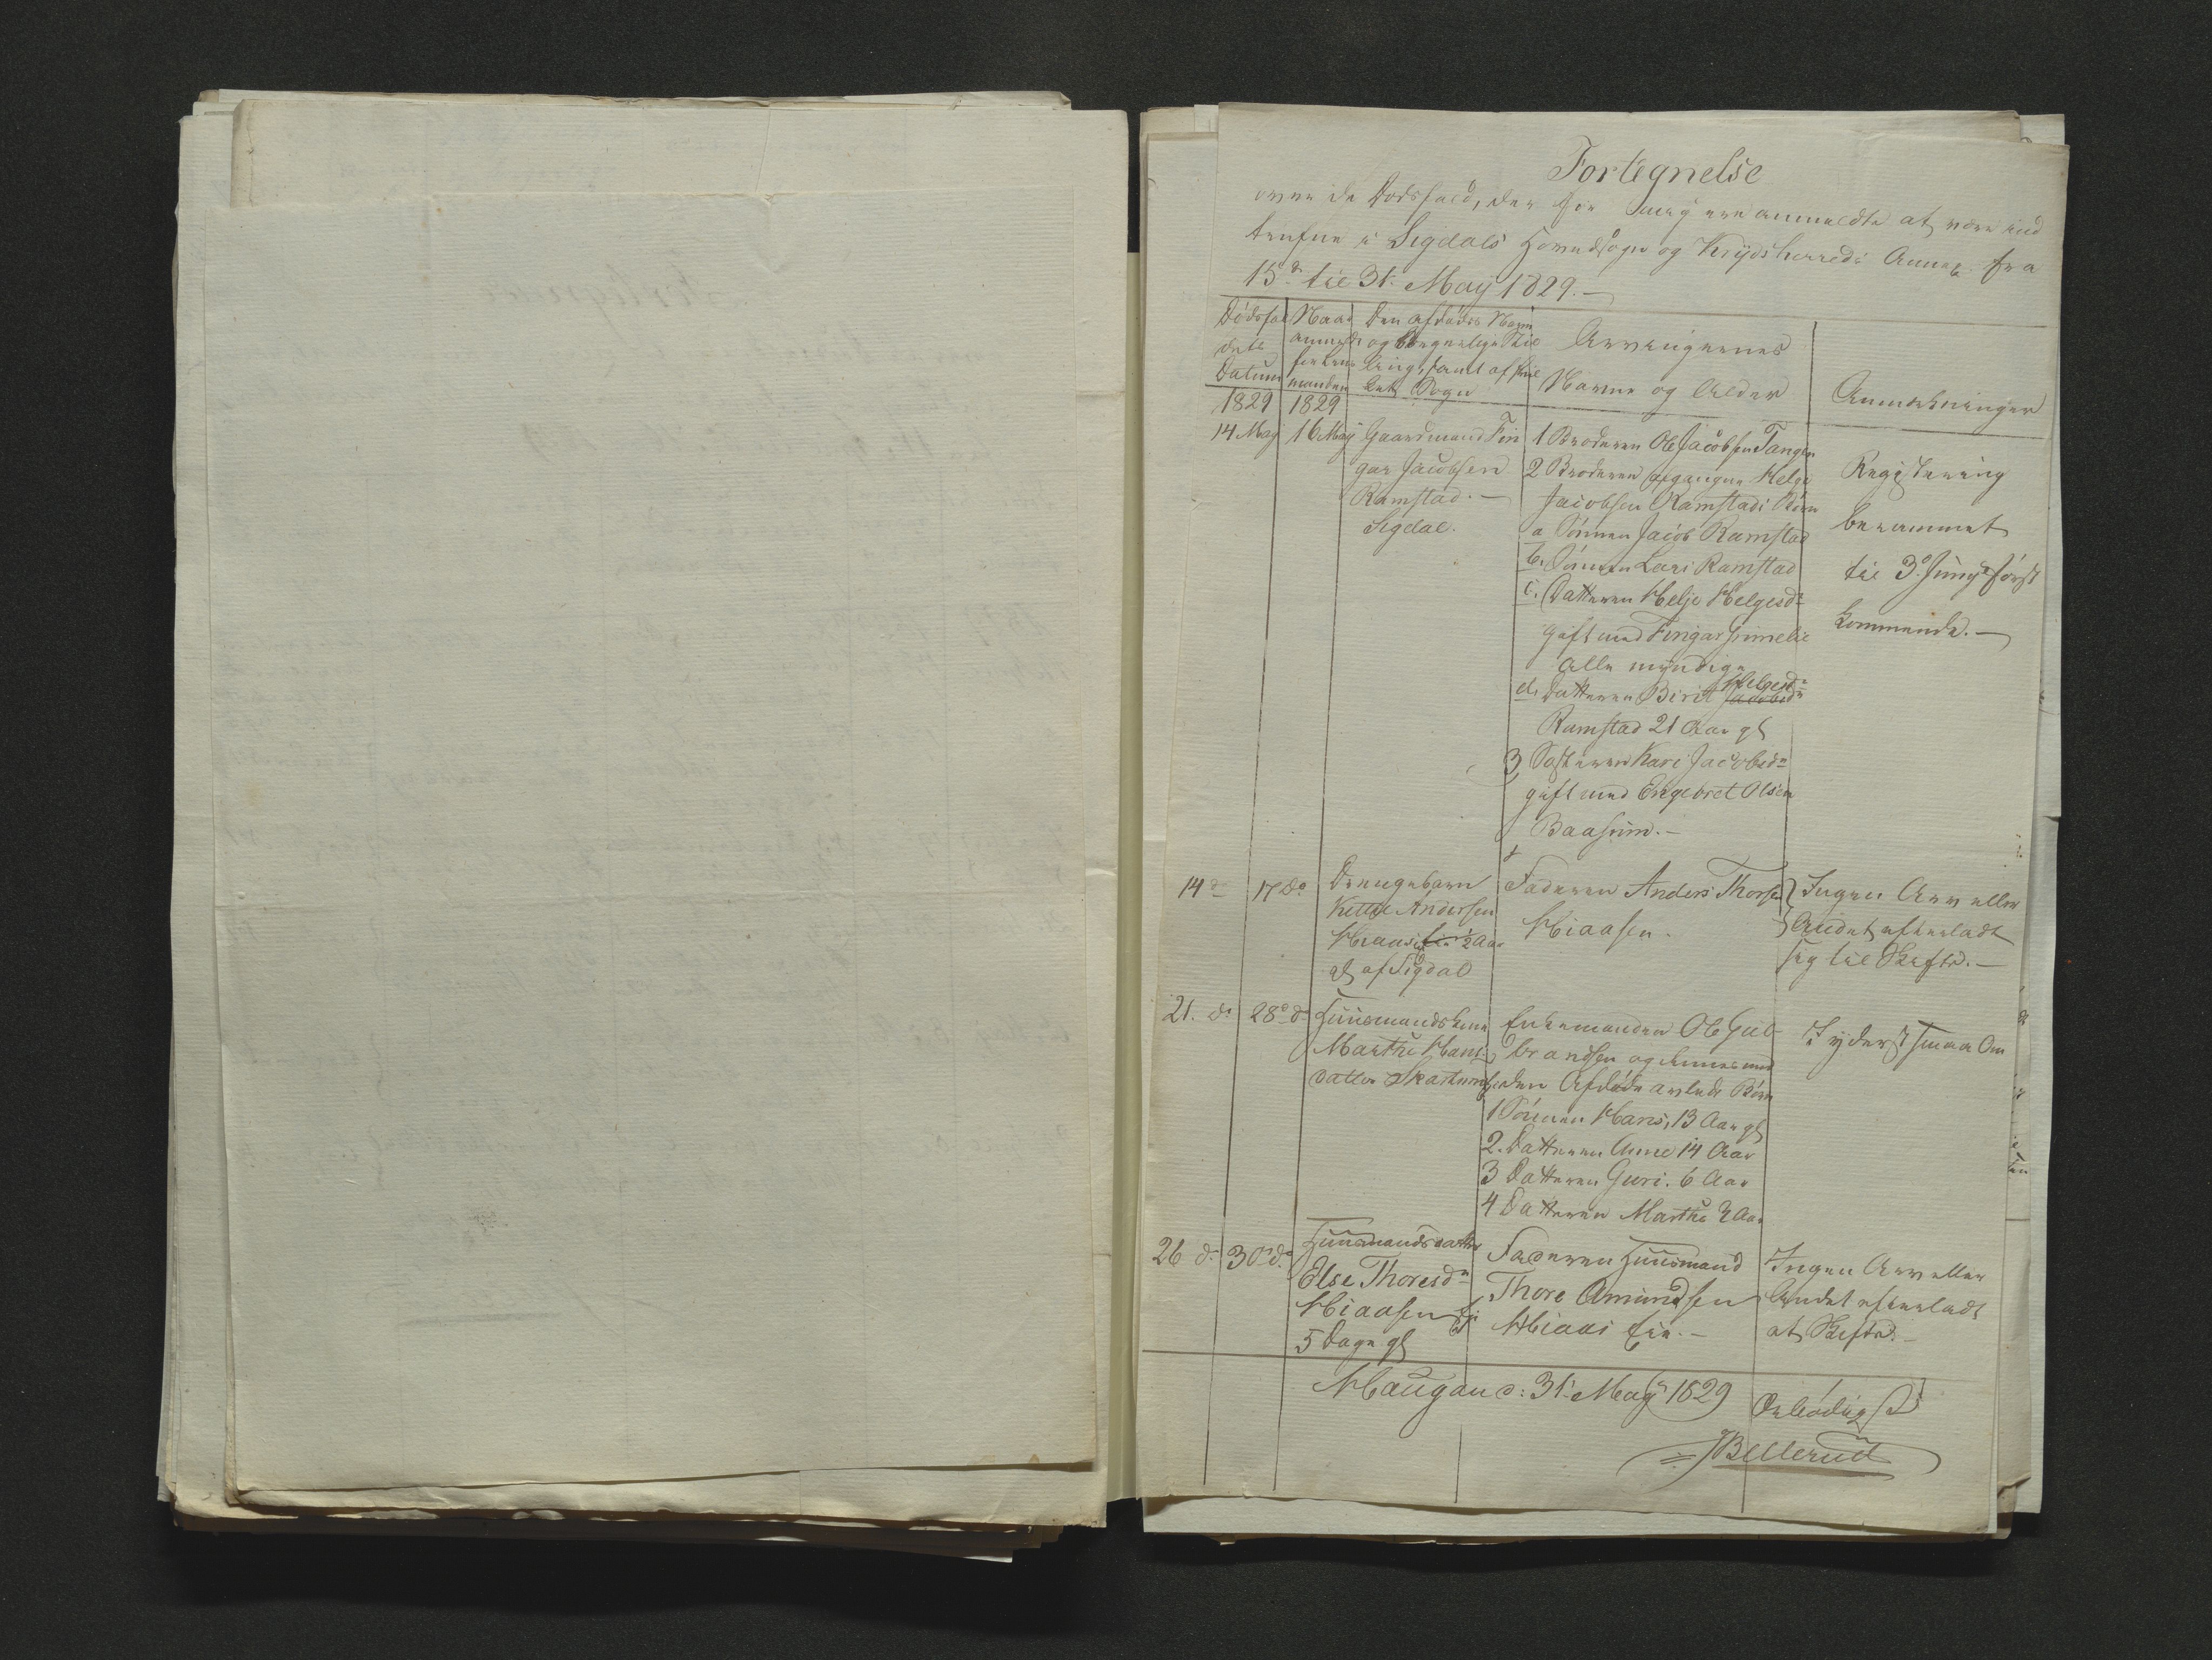 Fortegnelse
over de Dødsfald, der for mig ere anmeldte at være ind
trufne i Sigdals Hovedsogn og Krydsherreds Annex fra
15de til 31. May 1829.
Dødsfal
dets
Datum
Naar
anmeldt
for Lens
manden
Den afdødes Navn
og borgerlige Stil
ling, samt af hvil
ket Sogn
Arvingernes
Navne og Alder
Anmerkninger
1829
1829
14 May
16 May
Gaardmand Fin
gar Jacobsen
Ramstad.
Sigdal.
1 Broderen Ole Jacobsen Tangen
2 Broderen afgangne Helge
Jacobsen Ramstads Børn
a Sønnen Jacob Ramstad
b. Sønnen Lars Ramstad
c. Datteren Helje Helgesdr
gift med Fingar Grimelie
alle myndige
d. Datteren Birit Jacobsdr Helgesdr
Ramstad 21 Aar gl
3 Søsteren Kari Jacobsdr
gift med Engebret Olsen
Baasrum.
Registrering
berammet
til 3. Juny først
kommende.
14 do
17 do
Drengebarn
Kittil Andersen
Hiaas eie ½ Aar
gl af Sigdal
Faderen Anders Thorsen
Hiaasen.
Ingen Arv eller
Andet efterladt
sig til Skifte.
21. do
28 do
Huusmandskone
Marthe Hans
datter Skartum
Enkemanden Ole Gul
brandsen og hennes med
den Afdøde avlede Børn
1 Sønnen Hans, 13 Aar gl
2. Datteren Anne 14 Aar
3 Datteren Guri. 6 Aar
4 Datteren Marthe 2 Aar
I yderst smaa Om
26 do
30 do
Huusmandsdatter
Else Thoresdr
Hiaasen eie
5 Dage gl
Faderen Huusmand
Thore Amundsen
Hiaas eie.
Ingen Arv eller
Andet efterladt
at Skifte.
Haugan d: 31. May 1829
Ærbødigst
Bellerud